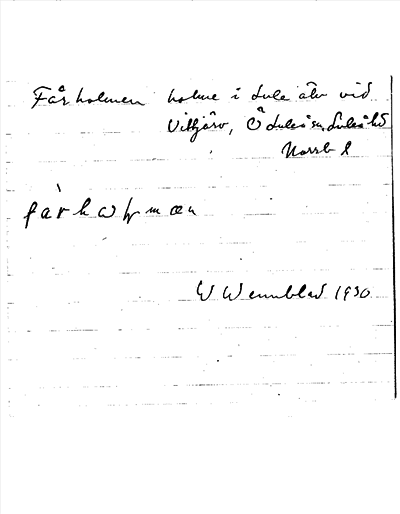 Fårholmen holme i Lule älv vid
Vittjärv, Ö Luleå sn, Luleå hd
Norrb l
fårhoɷmæn
W Wennblad 1930